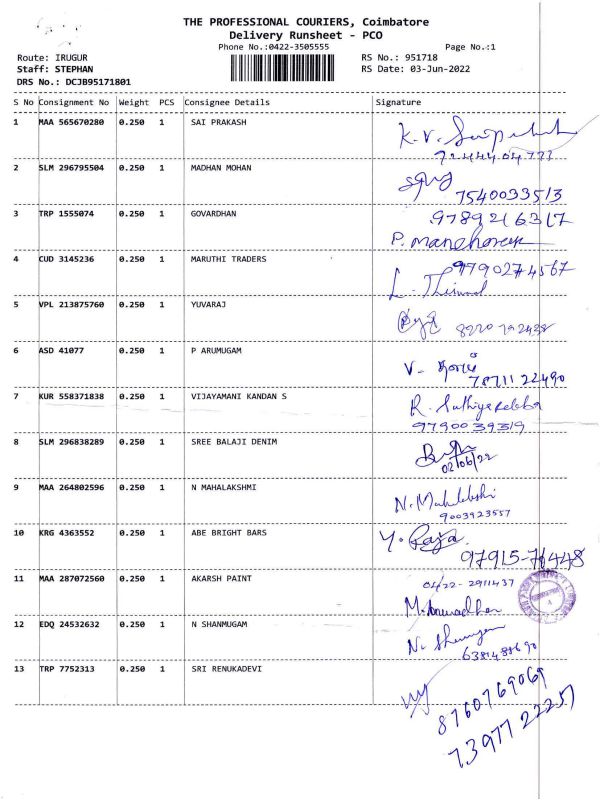 THE PROFESSIONAL COURIERS, Coimbatore
Delivery Runsheet - PCO
Phone No.:0422-3505555
Page No.:1
Route: IRUGUR
RS No.: 951718
Staff: STEPHAN
RS Date: 03-Jun-2022
DRS No.: DCJB95171801
S No Consignment No Weight PCS Consignee Details Signature
1 MAA 565670280 0.250 1 SAI PRAKASH K.V.
2 SLM 296795504 0.250 1 MADHAN MOHAN
7540033513
3 TRP 1555074 0.250 1 GOVARDHAN 9789216317
P. Manoharan
4 CUD 3145236 0.250 1 MARUTHI TRADERS 9790274567
L.
5 VPL 213875760 0.250 1 YUVARAJ
6 ASD 41077 0.250 1 P ARUMUGAM V-
7871122490
7 KUR 558371838 0.250 1 VIJAYAMANI KANDAN S R.
9790039319
8 SLM 296838289 0.250 1 SREE BALAJI DENIM
02/06/22
9 MAA 264802596 0.250 1 N MAHALAKSHMI N. Mahalakshmi
9003923557
10 KRG 4363552 0.250 1 ABE BRIGHT BARS Y. Raja
97915-76448
11 MAA 287072560 0.250 1 AKARSH PAINT 0422-2911437
12 EDQ 24532632 0.250 1 N SHANMUGAM N.
13 TRP 7752313 0.250 1 SRI RENUKADEVI
8760769069
7397722257